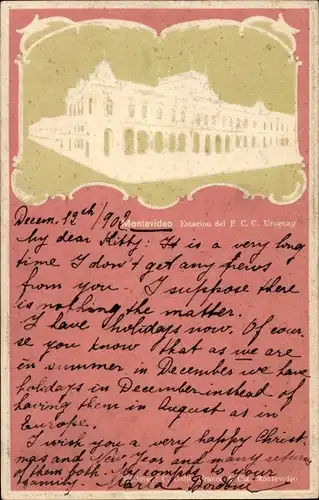 Montevideo Estacion del F. C. C. Uruguay
Decem. 12th/902
My dear Kitty: It is a very long
time I don't get any news
from you. I suppose there
is nothing the matter.
I have holidays now. Of cour-
se you know that as we are
in summer in December we have
holidays in December instead of
having them in August as in
Europe.
I wish you a very happy Christ-
mas and New Year and many returns
of them both. My compts to your
family. Maria